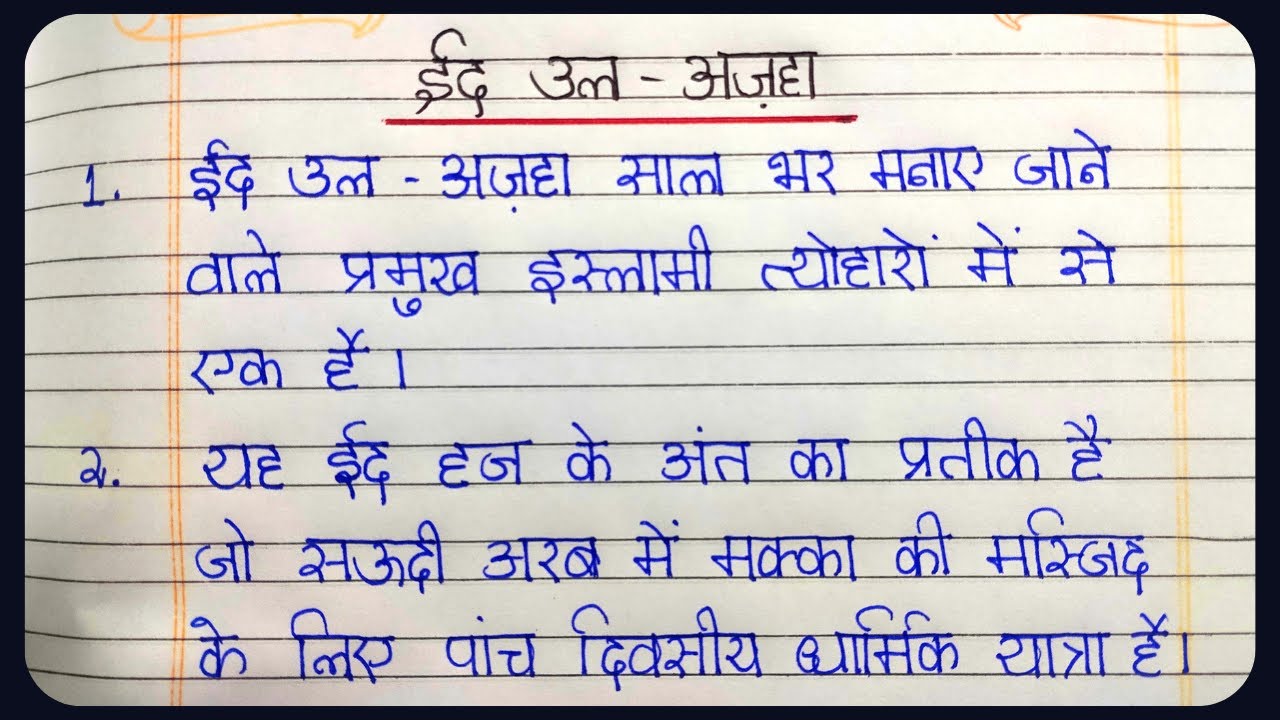 ईद उल - अज़हा
1. ईद उल - अज़हा साल भर मनाए जाने
वाले प्रमुख इस्लामी त्योहारों में से
एक है।
२. यह ईद हज के अंत का प्रतीक है
जो सऊदी अरब में मक्का की मस्जिद
के लिए पांच दिवसीय धार्मिक यात्रा है।